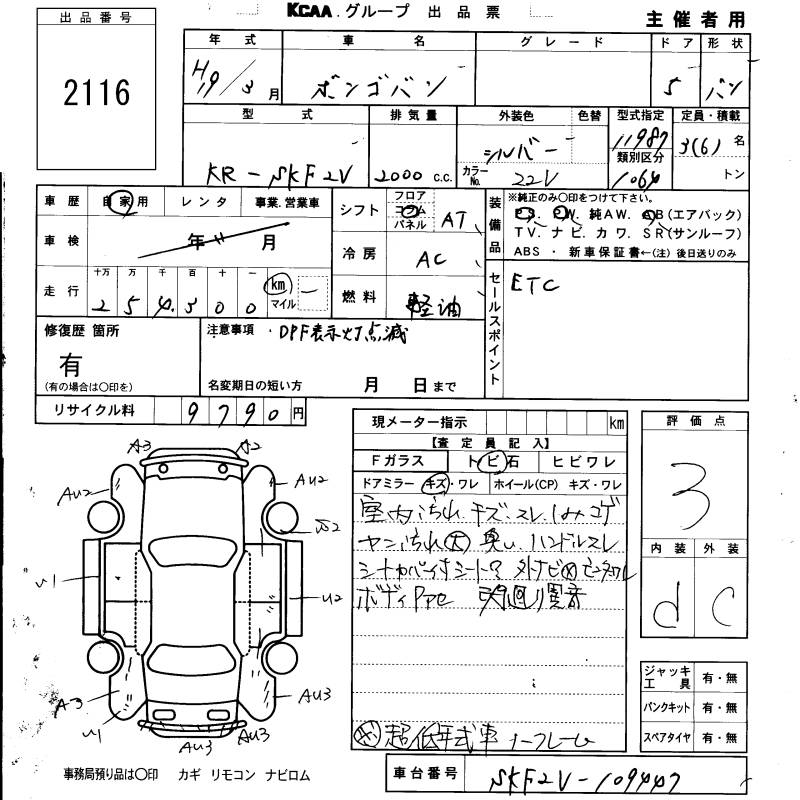 KCAA.グループ 出品票
主催者用
出品番号
2116
年式 車名 グレード ドア 形状
H19/3月 ボンゴバン 5 バン
型式 排気量 外装色 色替 型式指定 定員・積載
KR-SKF2V 2000 c.c. シルバー 11987 3(6)名
カラーNo. 22V 類別区分 1064 トン
車歴 自家用 レンタ 事業.営業車
車検 年 月
走行 十万 万 千 百 十 一
254300 km マイル
シフト フロア コラム パネル AT
冷房 AC
燃料 軽油
装備品
※純正のみ〇印をつけて下さい。
P S. P W. 純AW. A B (エアバック)
TV. ナビ. カワ. SR(サンルーフ)
ABS ・ 新車保証書←(注) 後日送りのみ
セールスポイント
ETC
修復歴 箇所
有
(有の場合は〇印を)
注意事項 ・DPF表示灯点滅
名変期日の短い方 月 日まで
リサイクル料 9790円
現メーター指示 km
【査定員記入】
Fガラス トビ石 ヒビワレ
ドアミラー キズ・ワレ ホイール(CP) キズ・ワレ
室内汚れ.キズ.スレ.しみコゲ
ヤニ汚れ大 臭い ハンドルスレ
ボディ 異音
超低年式車 ノークレーム
評価点
3
内装 外装
d C
ジャッキ工具 有・無
パンクキット 有・無
スペアタイヤ 有・無
A3 A2
AU2 AU2
U1 U2
A3 AU3
U1 AU3 AU3
事務局預り品は〇印 カギ リモコン ナビロム
車台番号 SKF2V-109447